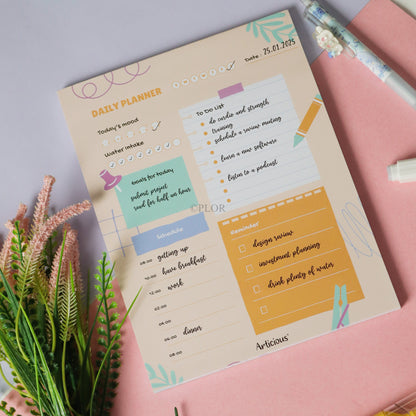 Articious
Date 25.01.2025
DAILY PLANNER
Today's mood
Water intake
To Do List
do cardio and strength
training
schedule a review meeting
learn a new software
listen to a podcast
Goals for today
submit project
read for half an hour
©PLOR
Schedule
08:00 getting up
10:00 have breakfast
12:00 work
dinner
Reminder
design review
investment planning
drink plenty of water
Articious